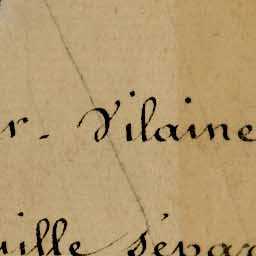 r - Vilaine
uille sépar